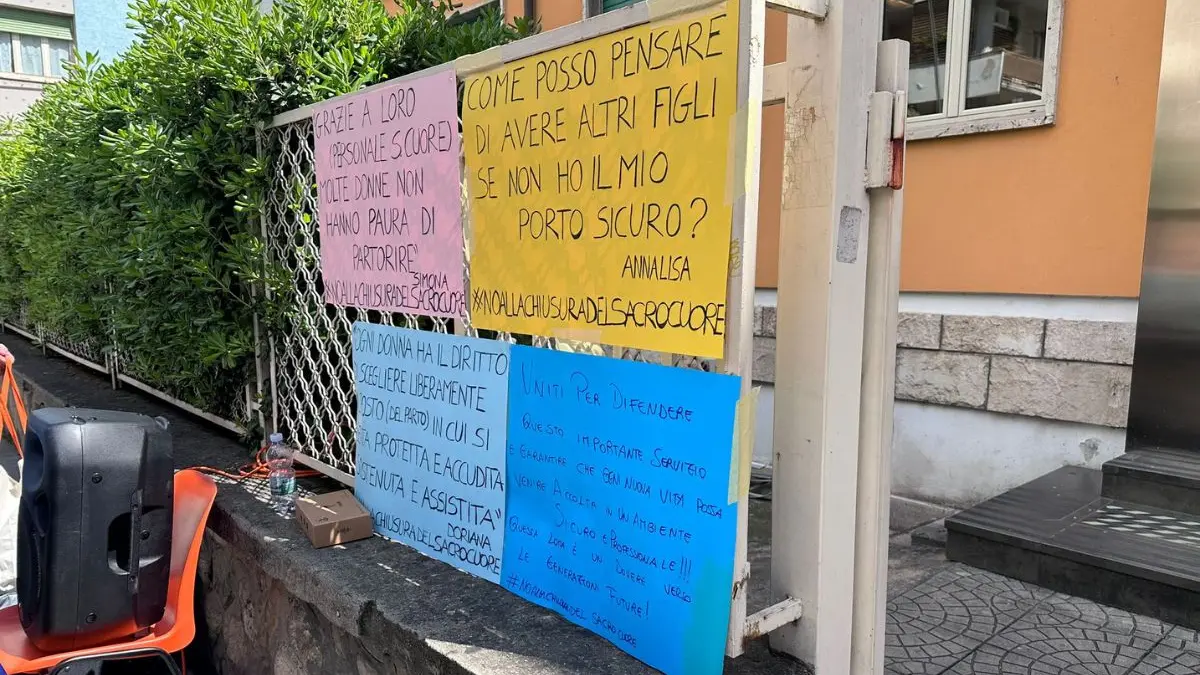 GRAZIE A LORO
(PERSONALE S.CUORE)
MOLTE DONNE NON
HANNO PAURA DI
PARTORIRE"
SIMONA
#NOALLACHIUSURADELSACROCUORE
COME POSSO PENSARE
DI AVERE ALTRI FIGLI
SE NON HO IL MIO
PORTO SICURO?
ANNALISA
#NOALLACHIUSURADELSACROCUORE
OGNI DONNA HA IL DIRITTO
SCEGLIERE LIBERAMENTE
OSTO (DEL PARTO) IN CUI SI
TA PROTETTA E ACCUDITA
STENUTA E ASSISTITA"
DORIANA
LACHIUSURADELSACROCUORE
UNITI PER DIFENDERE
QUESTO IMPORTANTE SERVIZIO
E GARANTIRE CHE OGNI NUOVA VITA POSSA
VENIRE ACCOLTA IN UN AMBIENTE
SICURO E PROFESSIONALE!!!
QUESTA LOTTA È UN DOVERE VERSO
LE GENERAZIONI FUTURE!
#NOALLACHIUSURADEL SACRO CUORE